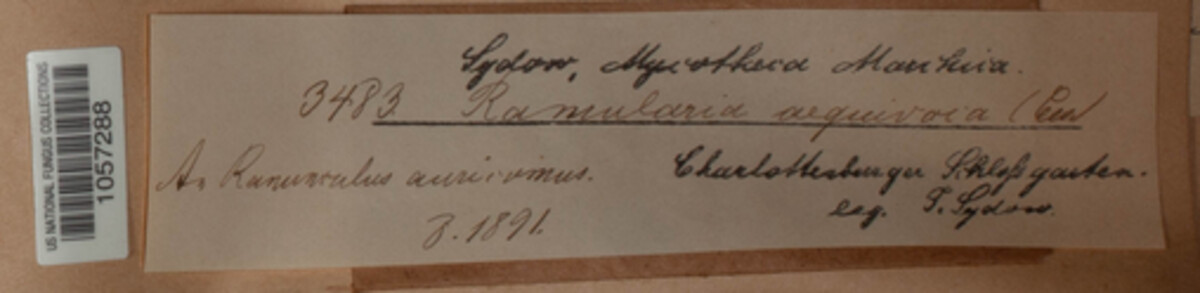 US NATIONAL FUNGUS COLLECTIONS
1057288
Sydow, Mycotheca Marchica.
3483 Ramularia aequivoca (Ces)
An Ranunculus auricomus.
Charlottenburger Schloßgarten.
8.1891.
leg. P. Sydow.